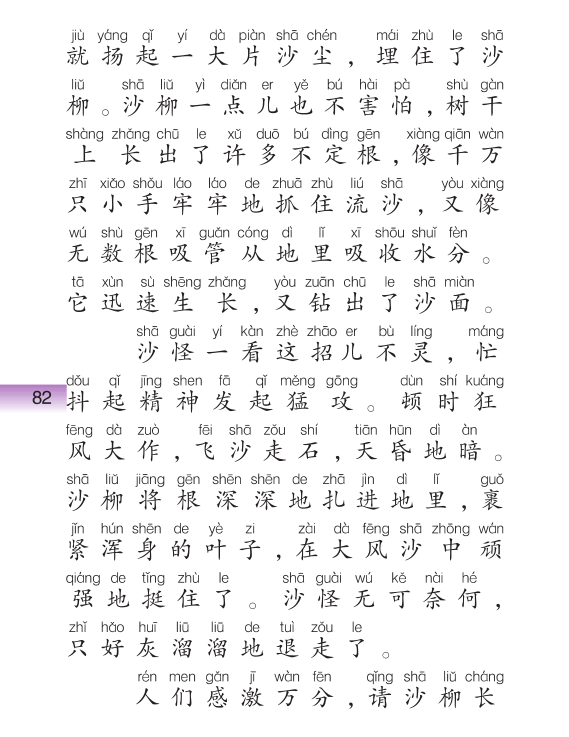 jiù yáng qǐ yí dà piàn shā chén mái zhù le shā
就扬起一大片沙尘，埋住了沙
liǔ shā liǔ yì diǎn er yě bú hài pà shù gàn
柳。沙柳一点儿也不害怕，树干
shàng zhǎng chū le xǔ duō bú dìng gēn xiàng qiān wàn
上长出了许多不定根，像千万
zhī xiǎo shǒu láo láo de zhuā zhù liú shā yòu xiàng
只小手牢牢地抓住流沙，又像
wú shù gēn xī guǎn cóng dì lǐ xī shōu shuǐ fèn
无数根吸管从地里吸收水分。
tā xùn sù shēng zhǎng yòu zuān chū le shā miàn
它迅速生长，又钻出了沙面。
shā guài yí kàn zhè zhāo er bù líng máng
沙怪一看这招儿不灵，忙
dǒu qǐ jīng shen fā qǐ měng gōng dùn shí kuáng
抖起精神发起猛攻。顿时狂
82
fēng dà zuò fēi shā zǒu shí tiān hūn dì àn
风大作，飞沙走石，天昏地暗。
shā liǔ jiāng gēn shēn shēn de zhā jìn dì lǐ guǒ
沙柳将根深深地扎进地里，裹
jǐn hún shēn de yè zi zài dà fēng shā zhōng wán
紧浑身的叶子，在大风沙中顽
qiáng de tǐng zhù le shā guài wú kě nài hé
强地挺住了。沙怪无可奈何，
zhǐ hǎo huī liū liū de tuì zǒu le
只好灰溜溜地退走了。
rén men gǎn jī wàn fēn qǐng shā liǔ cháng
人们感激万分，请沙柳长